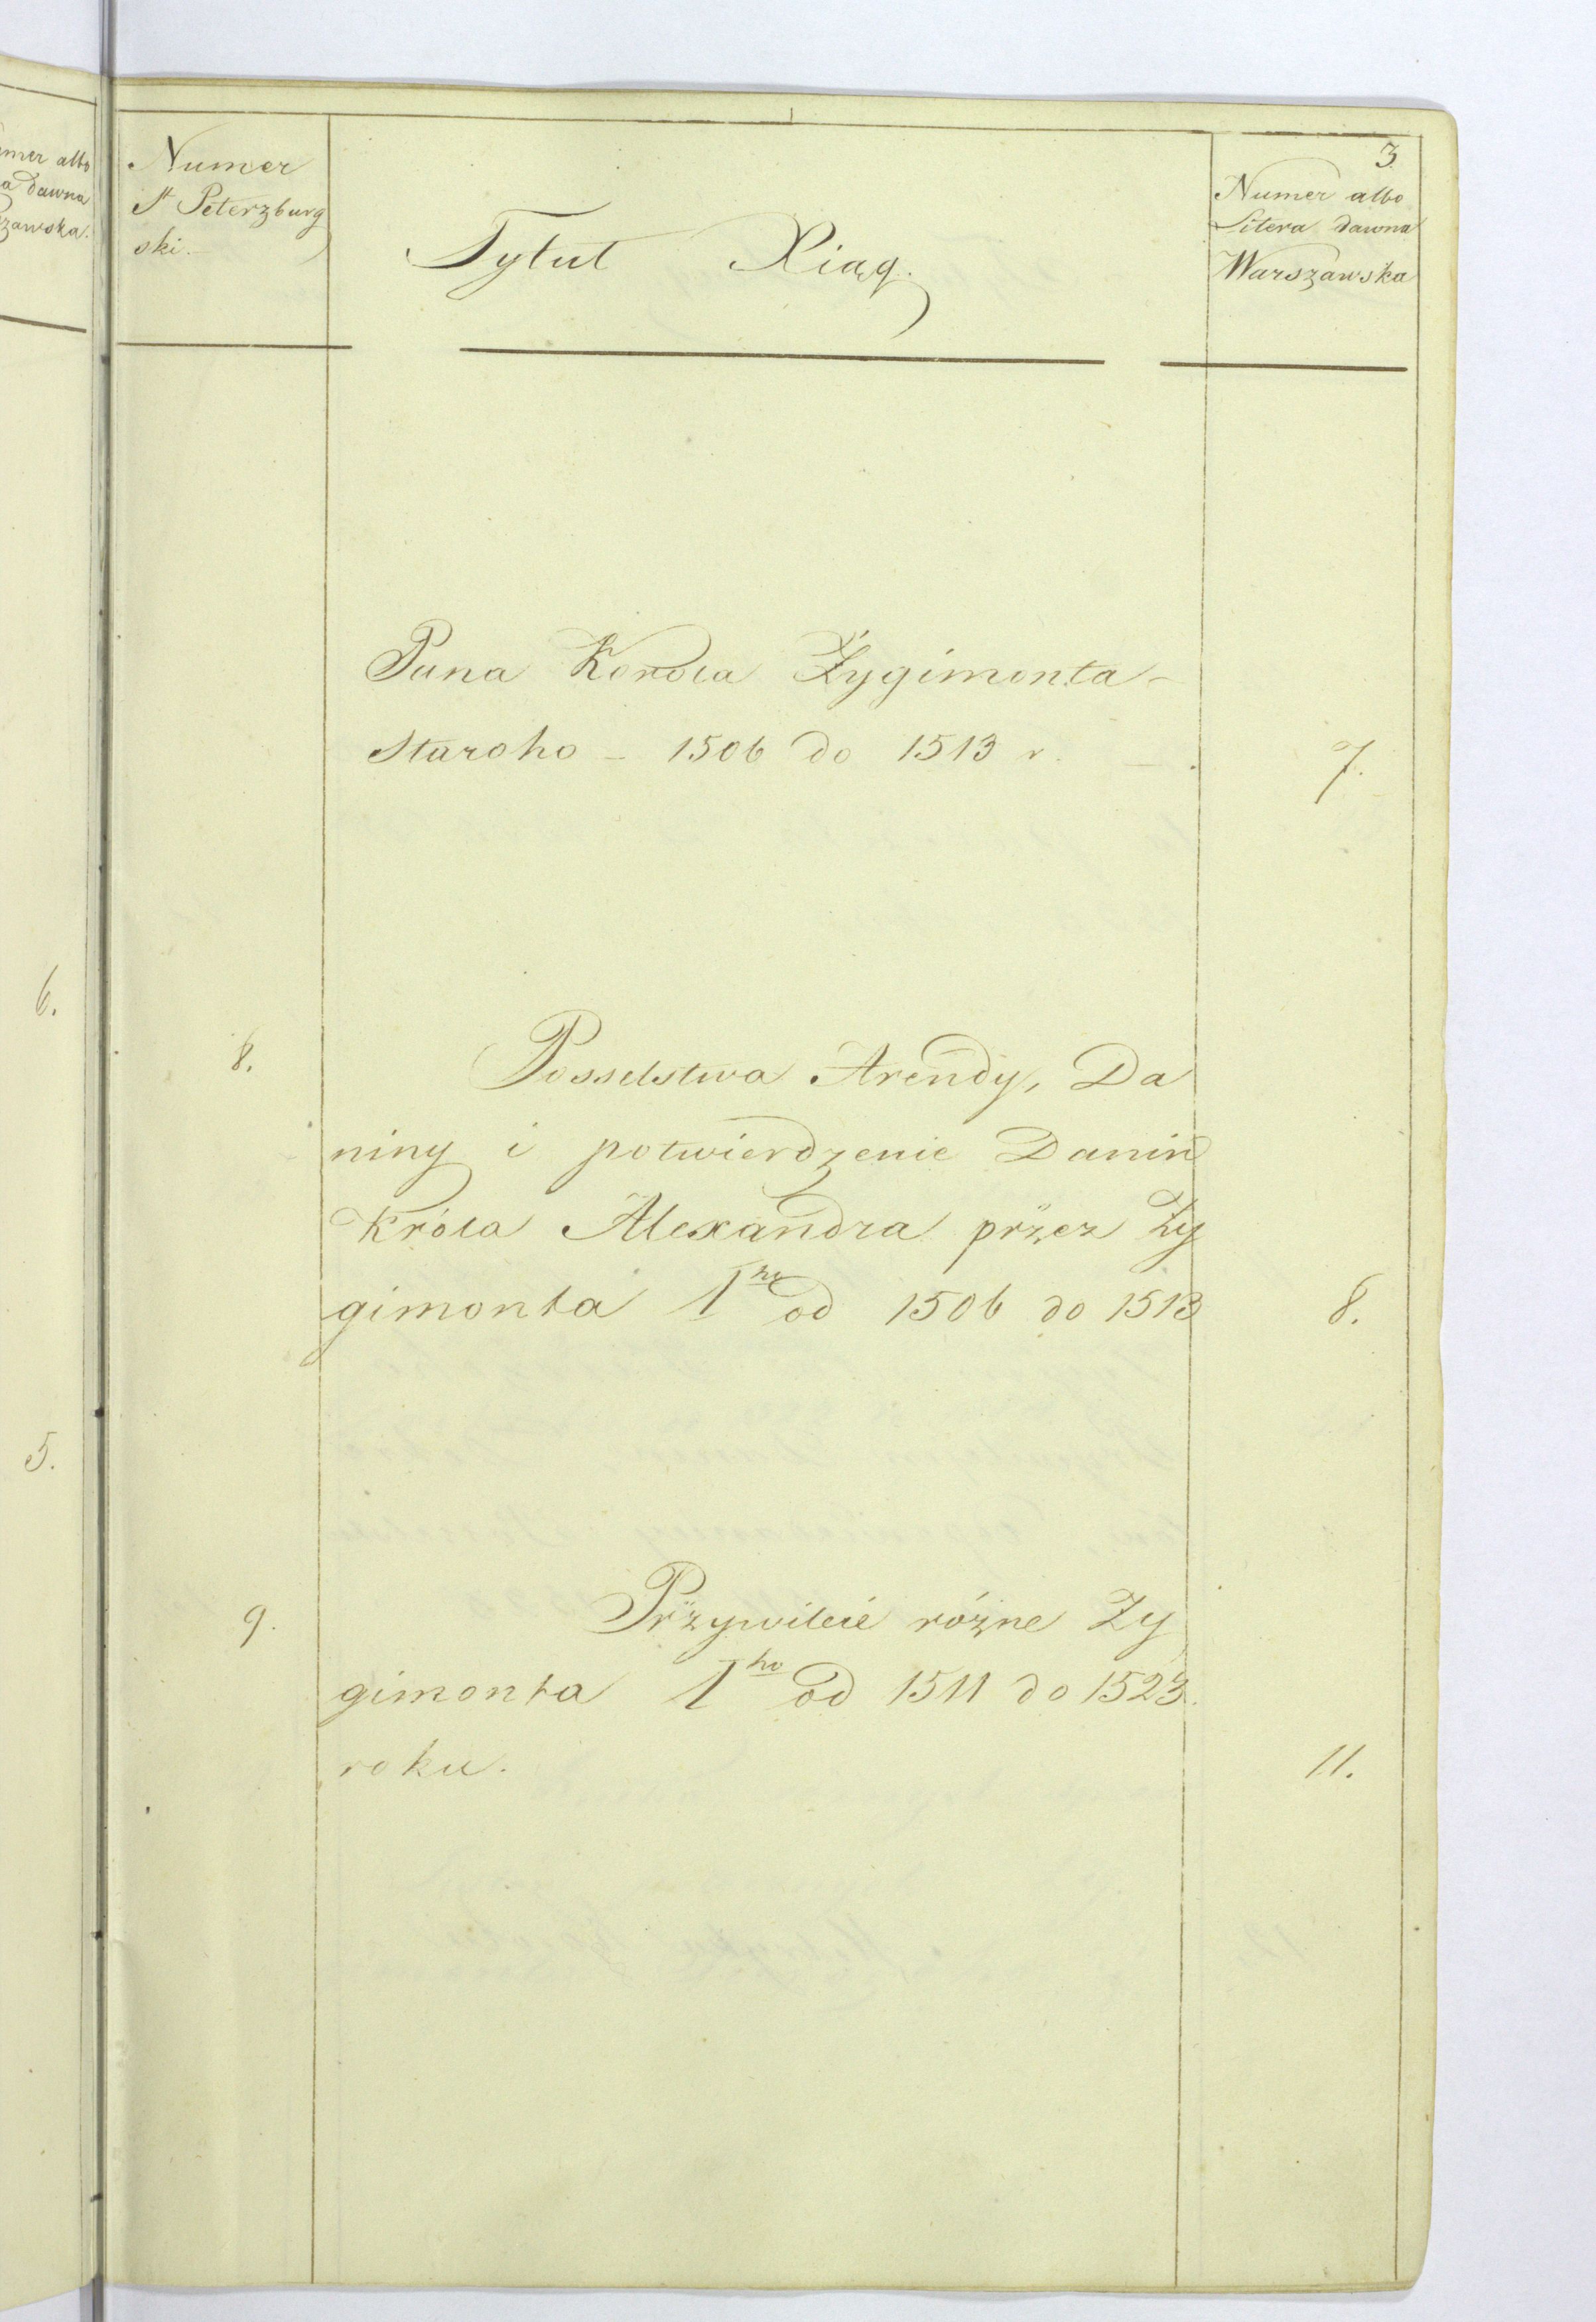 3
Numer
St Peterzburg
ski.
Tytuł Xiąg.
Numer albo
Litera dawna
Warszawska
Pana Korola Żygimonta -
Staroho - 1506 do 1513 r.
7.
6.
8.
Posselstwa Arendy, Da
niny i potwierdzenie Danin
Króla Alexandra przez Zy
gimonta 1go od 1506 do 1513
8.
5.
9.
Przywileie różne Zy
gimonta 1ho od 1511 do 1523.
roku.
11.